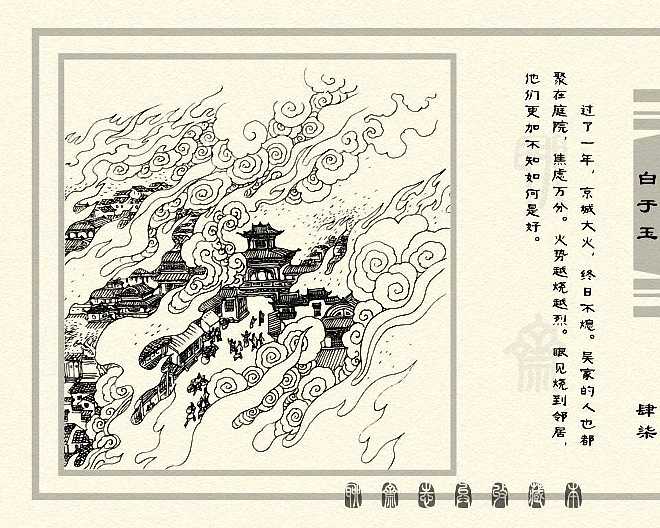 过了一年，京城大火，终日不熄。吴家的人也都
聚在庭院，焦虑万分。火势越烧越烈。眼见烧到邻居，
他们更加不知如何是好。
白于玉
肆柒